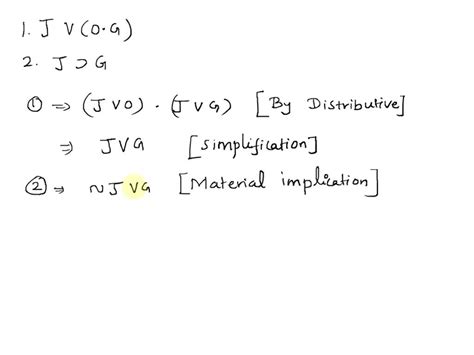 1. J V (O·G)
2. J ⊃ G
① ⇒ (J V O) · (J V G) [By Distributive]
⇒ J V G [Simplification]
② ⇒ ~J V G [Material implication]